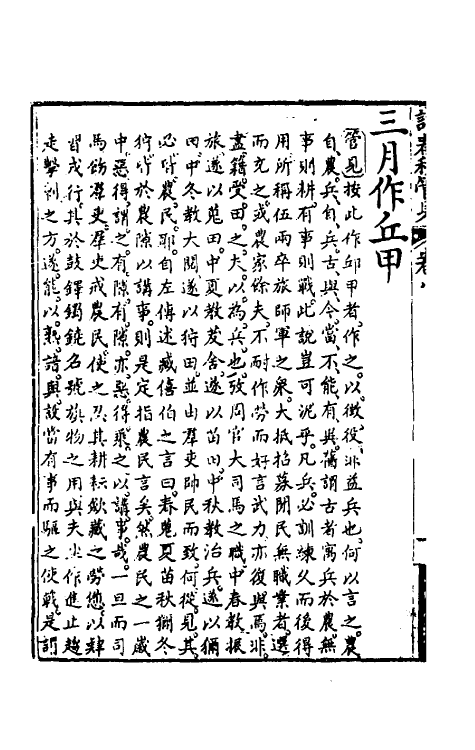 三月作丘甲
管見按此作邱甲者作之以徴役非益兵也何以言之農
自農兵自兵古與今當不能有異儒謂古者寓兵於農無
事則耕有事則戰此說豈可泥乎凡兵必訓練久而後得
用所稱伍兩卒旅師軍之衆大抵招募閒民無職業者選
而充之或農家餘夫不耐作勞而好言武力亦復與焉非
盡籍受田之夫以為兵也攷周官大司馬之職中春教振
旅遂以蒐田中夏教茇舍遂以苗田中秋教治兵遂以獮
田中冬教大閱遂以狩田並由羣吏帥民而致何從見其
必皆農民耶自左傳述臧僖伯之言曰春蒐夏苗秋獮冬
狩皆於農隙以講事則是定指農民言矣然農民之一歲
中惡得謂之有隙有隙亦惡得乘之以講事哉一旦而司
馬飭羣吏羣吏戒農民使之忍其耕耘歛藏之勞憊以肄
習戎行其於鼓鐸鐲鐃名號旗物之用與夫坐作進止趨
走擊刺之方遂能以熟諳與設當有事而驅之使戰是謂